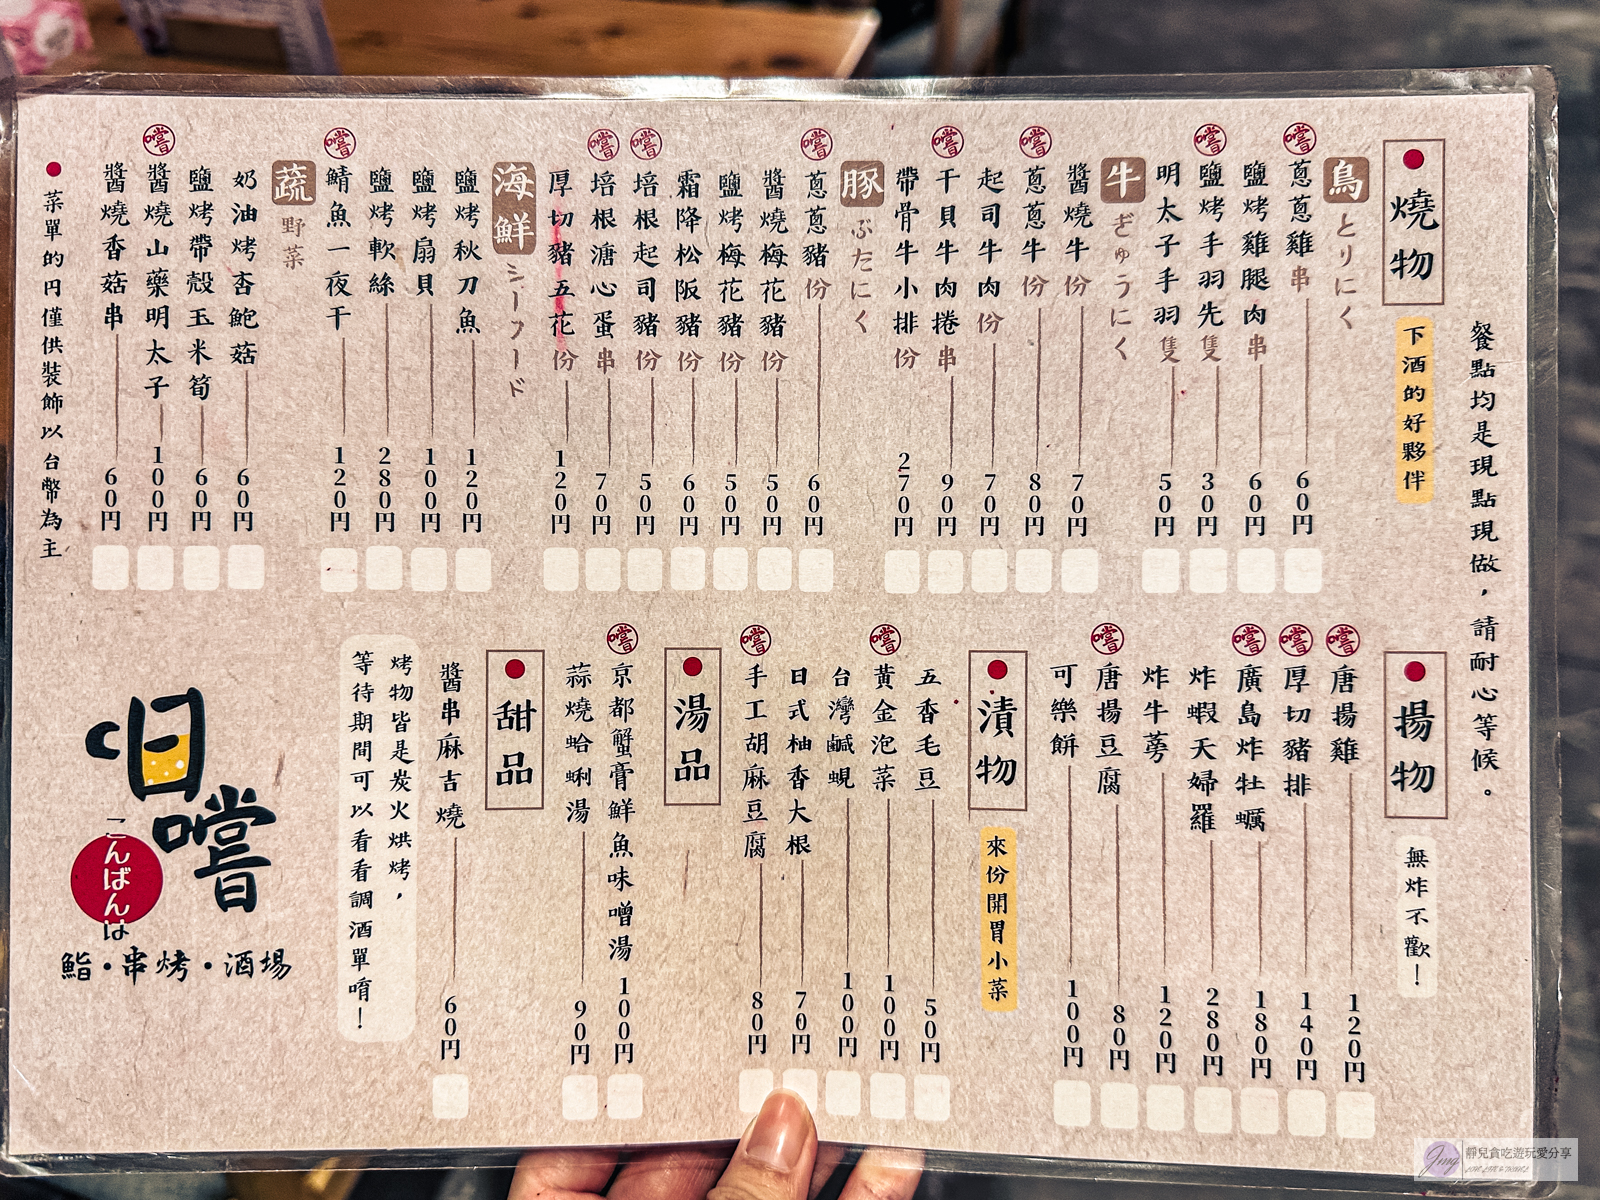 餐點均是現點現做，請耐心等候。
燒物
下酒的好夥伴
鳥 とりにく
嚐 蔥蔥雞串 60円
鹽烤雞腿肉串 60円
嚐 鹽烤手羽先隻 30円
明太子手羽隻 50円
牛 ぎゅうにく
醬燒牛份 70円
嚐 蔥蔥牛份 80円
起司牛肉份 70円
嚐 干貝牛肉捲串 90円
帶骨牛小排份 270円
豚 ぶたにく
嚐 蔥蔥豬份 60円
醬燒梅花豬份 50円
鹽烤梅花豬份 50円
霜降松阪豬份 60円
嚐 培根起司豬份 50円
嚐 培根溏心蛋串 70円
厚切豬五花份 120円
海鮮 シーフード
鹽烤秋刀魚 120円
鹽烤扇貝 100円
鹽烤軟絲 280円
嚐 鯖魚一夜干 120円
蔬 野菜
奶油烤杏鮑菇 60円
鹽烤帶殼玉米筍 60円
嚐 醬燒山藥明太子 100円
醬燒香菇串 60円
菜單的円僅供裝飾以台幣為主
揚物
無炸不歡！
嚐 唐揚雞 120円
嚐 厚切豬排 140円
嚐 廣島炸牡蠣 180円
炸蝦天婦羅 280円
炸牛蒡 120円
嚐 唐揚豆腐 80円
可樂餅 100円
漬物
來份開胃小菜
五香毛豆 50円
嚐 黃金泡菜 100円
台灣鹹蜆 100円
日式柚香大根 70円
嚐 手工胡麻豆腐 80円
湯品
嚐 京都蟹膏鮮魚味噌湯 100円
蒜燒蛤蜊湯 90円
甜品
醬串麻吉燒 60円
烤物皆是炭火烘烤，
等待期間可以看看調酒單唷！
嚐
こんばんは
鮨・串烤・酒場
靜兒貪吃遊玩愛分享